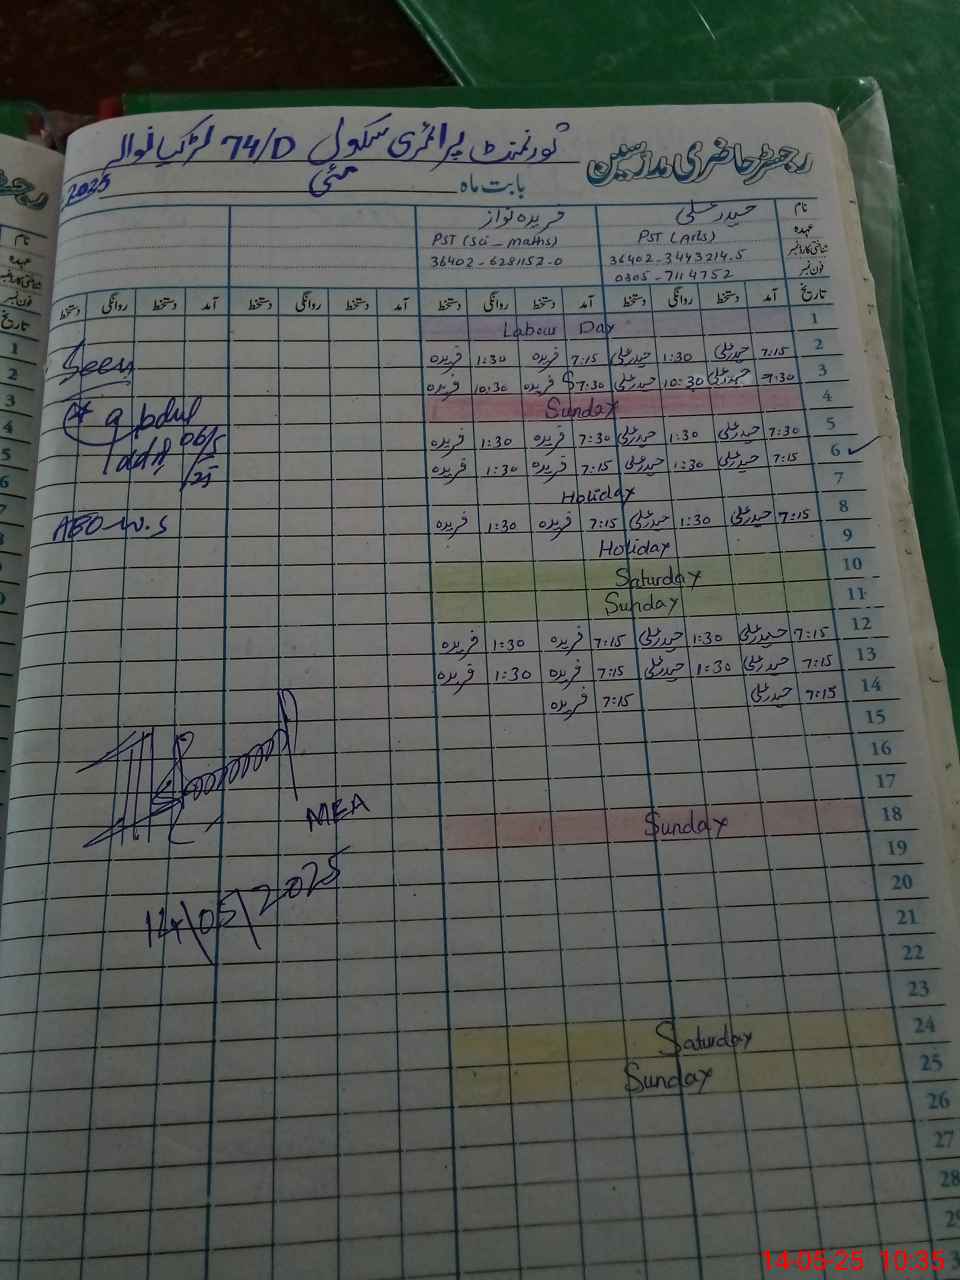 رجسٹر حاضری مدرسین
گورنمنٹ پرائمری سکول 74/D لڑکیانوالہ
بابت ماہ مئی 2025
نام حیدر علی فریدہ نواز
عہدہ PST (Arts) PST (Sci - Maths)
شناختی کارڈ نمبر 36402-3443214-5 36402-6281152-0
فون نمبر 0305-7114752
تاریخ آمد دستخط روانگی دستخط آمد دستخط روانگی دستخط آمد دستخط روانگی دستخط آمد دستخط روانگی دستخط
1 Labour Day
2 7:15 حیدر علی 1:30 حیدر علی 7:15 فریدہ 1:30 فریدہ
3 7:30 حیدر علی 10:30 حیدر علی 7:30 فریدہ 10:30 فریدہ
4 Sunday
5 7:30 حیدر علی 1:30 حیدر علی 7:30 فریدہ 1:30 فریدہ
6 7:15 حیدر علی 1:30 حیدر علی 7:15 فریدہ 1:30 فریدہ
7 Holiday
8 7:15 حیدر علی 1:30 حیدر علی 7:15 فریدہ 1:30 فریدہ
9 Holiday
10 Saturday
11 Sunday
12 7:15 حیدر علی 1:30 حیدر علی 7:15 فریدہ 1:30 فریدہ
13 7:15 حیدر علی 1:30 حیدر علی 7:15 فریدہ 1:30 فریدہ
14 7:15 حیدر علی 7:15 فریدہ
15
16
17
18 Sunday
19
20
21
22
23
24 Saturday
25 Sunday
26
27
28
Seen
06/5/25
AEO-W.S
MEA
14/05/2025
14-05-25 10:35